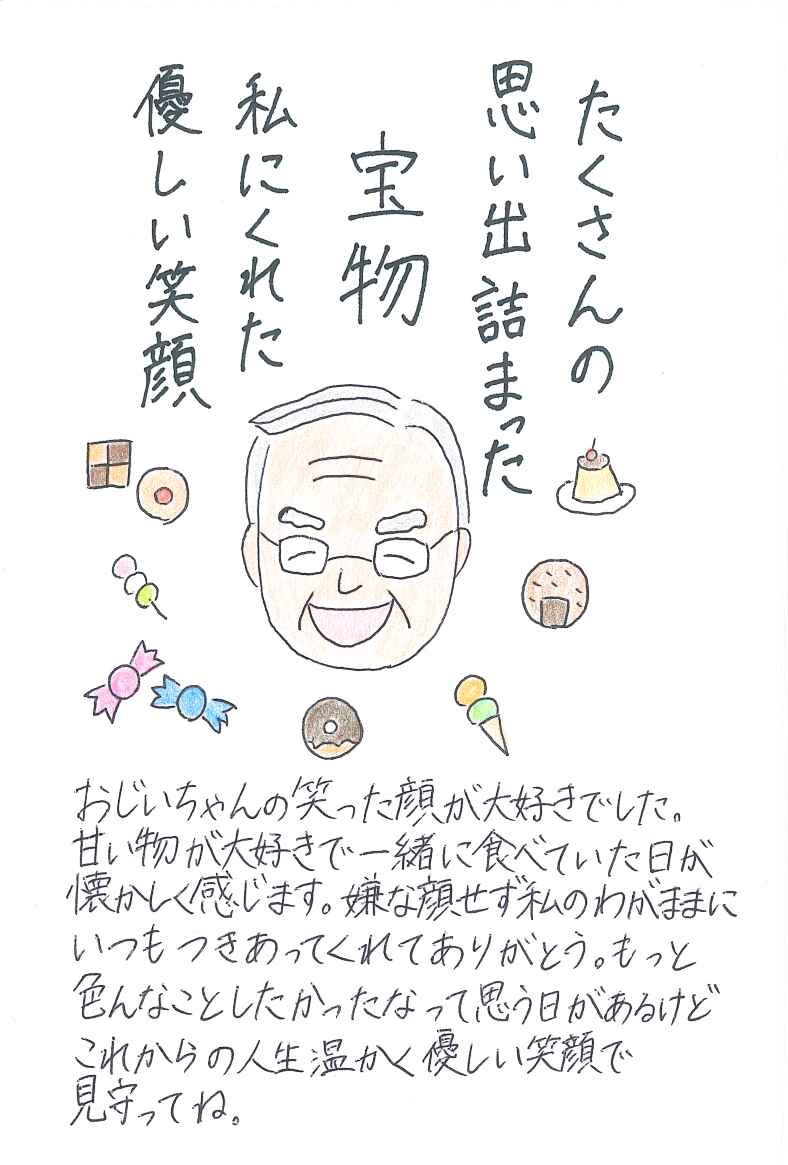 たくさんの
思い出詰まった
宝物
私にくれた
優しい笑顔
おじいちゃんの笑った顔が大好きでした。
甘い物が大好きで一緒に食べていた日が
懐かしく感じます。嫌な顔せず私のわがままに
いつもつきあってくれてありがとう。もっと
色んなことしたかったなって思う日があるけど
これからの人生温かく優しい笑顔で
見守ってね。